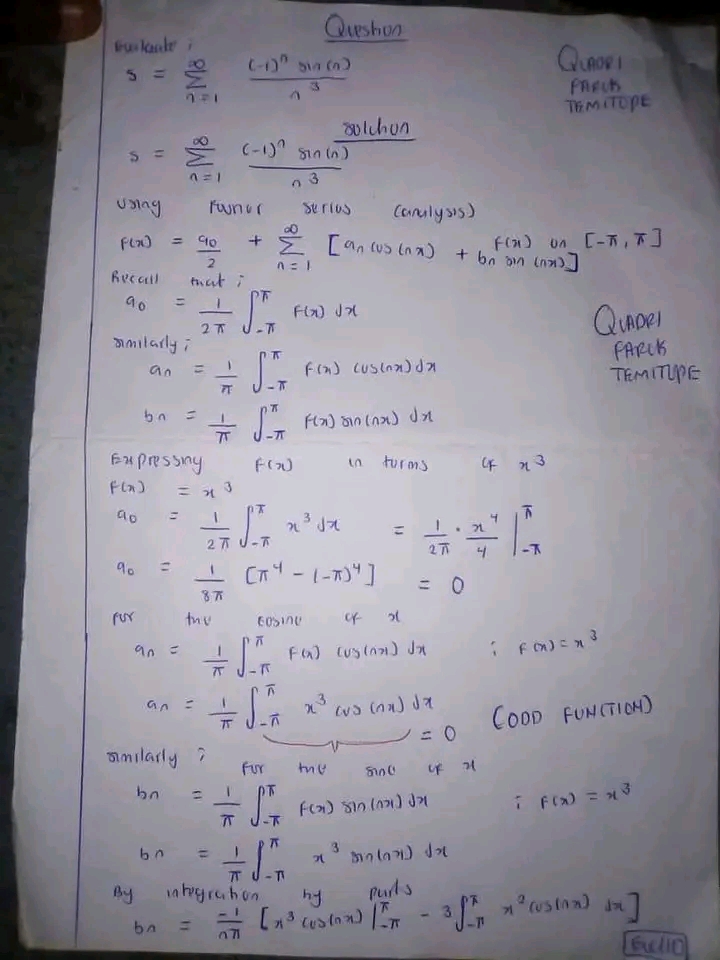 Question
Evaluate ;
S = ∑_{n=1}^{∞} (-1)^n sin(n) / n^3
QUADRI
FARUK
TEMITOPE
solution
S = ∑_{n=1}^{∞} (-1)^n sin(n) / n^3
Using Fourier series (analysis)
F(x) on [-π, π]
F(x) = a0/2 + ∑_{n=1}^{∞} [an cos(nx) + bn sin(nx)]
Recall that ;
a0 = 1/2π ∫_{-π}^{π} F(x) dx
QUADRI
FARUK
TEMITOPE
similarly ;
an = 1/π ∫_{-π}^{π} F(x) cos(nx) dx
bn = 1/π ∫_{-π}^{π} F(x) sin(nx) dx
Expressing F(x) in terms of x^3
F(x) = x^3
a0 = 1/2π ∫_{-π}^{π} x^3 dx = 1/2π · x^4/4 |_{-π}^{π}
a0 = 1/8π [π^4 - (-π)^4] = 0
For the cosine of x
an = 1/π ∫_{-π}^{π} F(x) cos(nx) dx ; F(x) = x^3
an = 1/π ∫_{-π}^{π} x^3 cos(nx) dx = 0 (ODD FUNCTION)
similarly ;
For the sine of x
bn = 1/π ∫_{-π}^{π} F(x) sin(nx) dx ; F(x) = x^3
bn = 1/π ∫_{-π}^{π} x^3 sin(nx) dx
By integration by parts
bn = -1/nπ [x^3 cos(nx) |_{-π}^{π} - 3 ∫_{-π}^{π} x^2 cos(nx) dx]